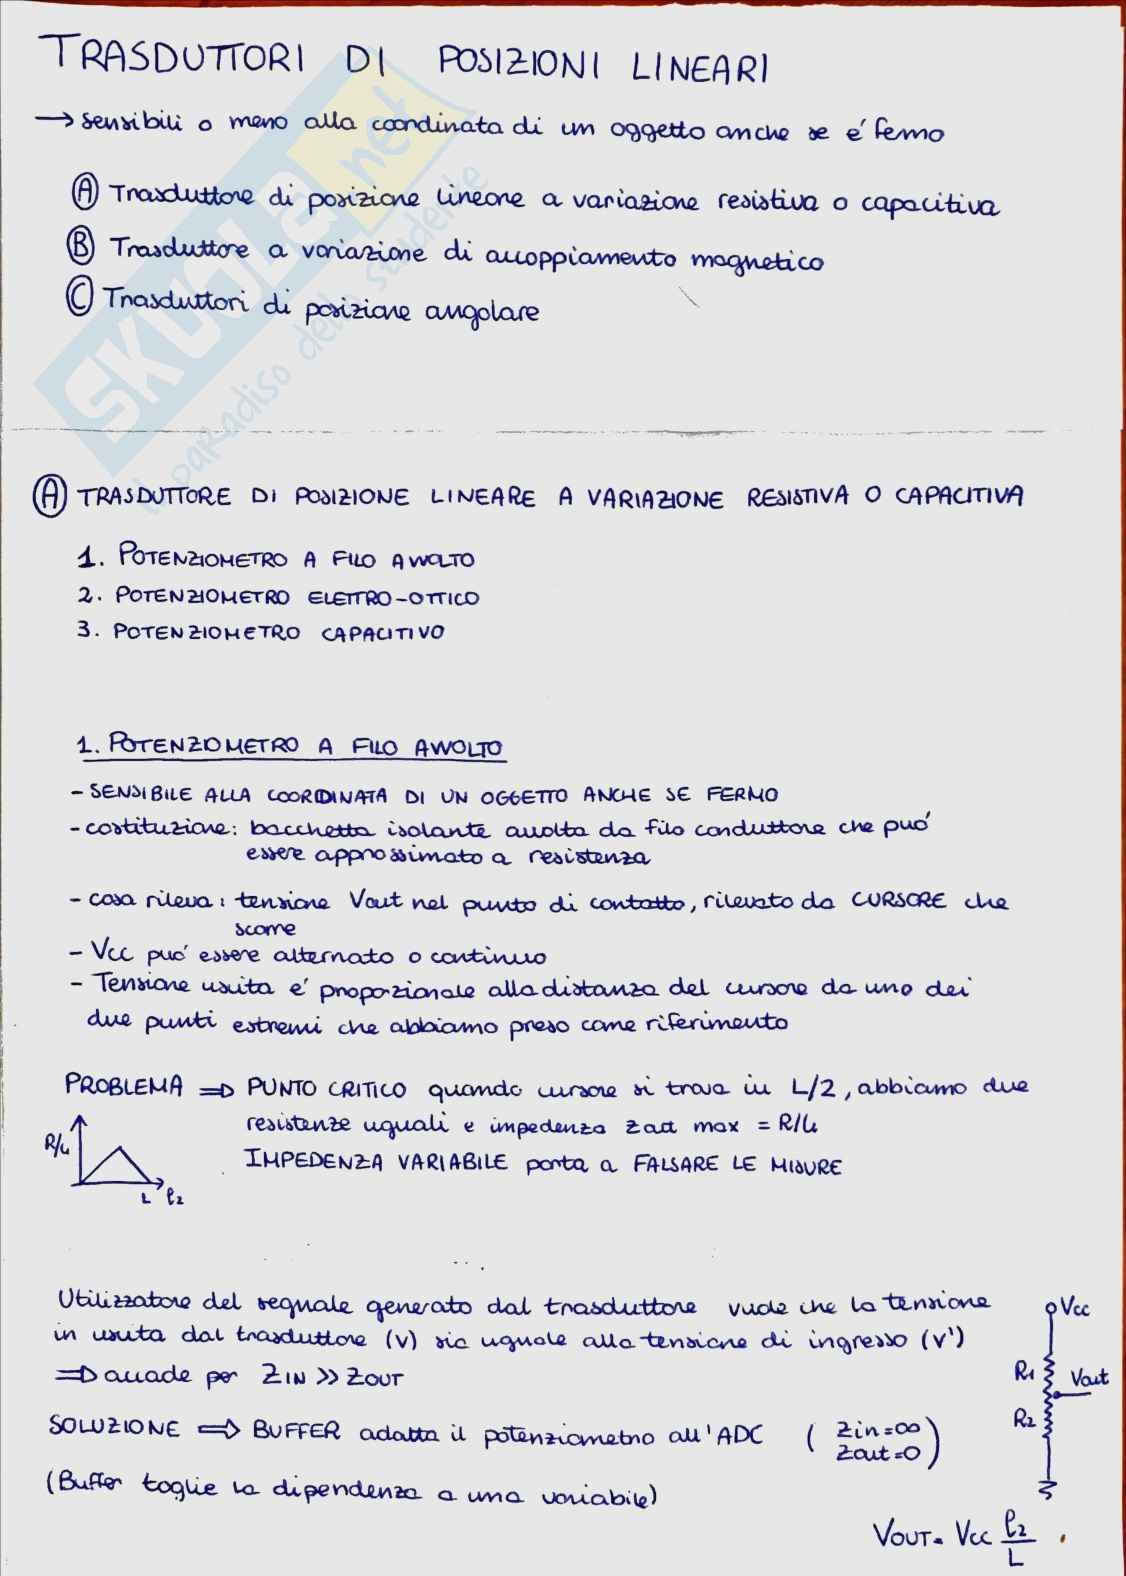 TRASDUTTORI DI POSIZIONI LINEARI
→ sensibili o meno alla coordinata di un oggetto anche se é fermo
Ⓐ Trasduttore di posizione lineare a variazione resistiva o capacitiva
Ⓑ Trasduttore a variazione di accoppiamento magnetico
Ⓒ Trasduttori di posizione angolare
SKUOLA.net
il paradiso dello studente
Ⓐ TRASDUTTORE DI POSIZIONE LINEARE A VARIAZIONE RESISTIVA O CAPACITIVA
1. POTENZIOMETRO A FILO AVVOLTO
2. POTENZIOMETRO ELETTRO-OTTICO
3. POTENZIOMETRO CAPACITIVO
1. POTENZIOMETRO A FILO AVVOLTO
- SENSIBILE ALLA COORDINATA DI UN OGGETTO ANCHE SE FERMO
- costituzione: bacchetta isolante avvolta da filo conduttore che puó
essere approssimato a resistenza
- cosa rileva: tensione Vout nel punto di contatto, rilevato da CURSORE che
scorre
- Vcc puó essere alternato o continuo
- Tensione uscita é proporzionale alla distanza del cursore da uno dei
due punti estremi che abbiamo preso come riferimento
PROBLEMA ⇒ PUNTO CRITICO quando cursore si trova in L/2, abbiamo due
resistenze uguali e impedenza Zout max = R/4
IMPEDENZA VARIABILE porta a FALSARE LE MISURE
R/4
L ℓ2
Utilizzatore del segnale generato dal trasduttore vuole che la tensione
in uscita dal trasduttore (V) sia uguale alla tensione di ingresso (V')
⇒ accade per ZIN >> ZOUT
SOLUZIONE ⇒ BUFFER adatta il potenziometro all'ADC ( Zin=∞
Zout=0 )
(Buffer toglie la dipendenza a una variabile)
Vcc
R1
Vout
R2
VOUT = Vcc ℓ2/L